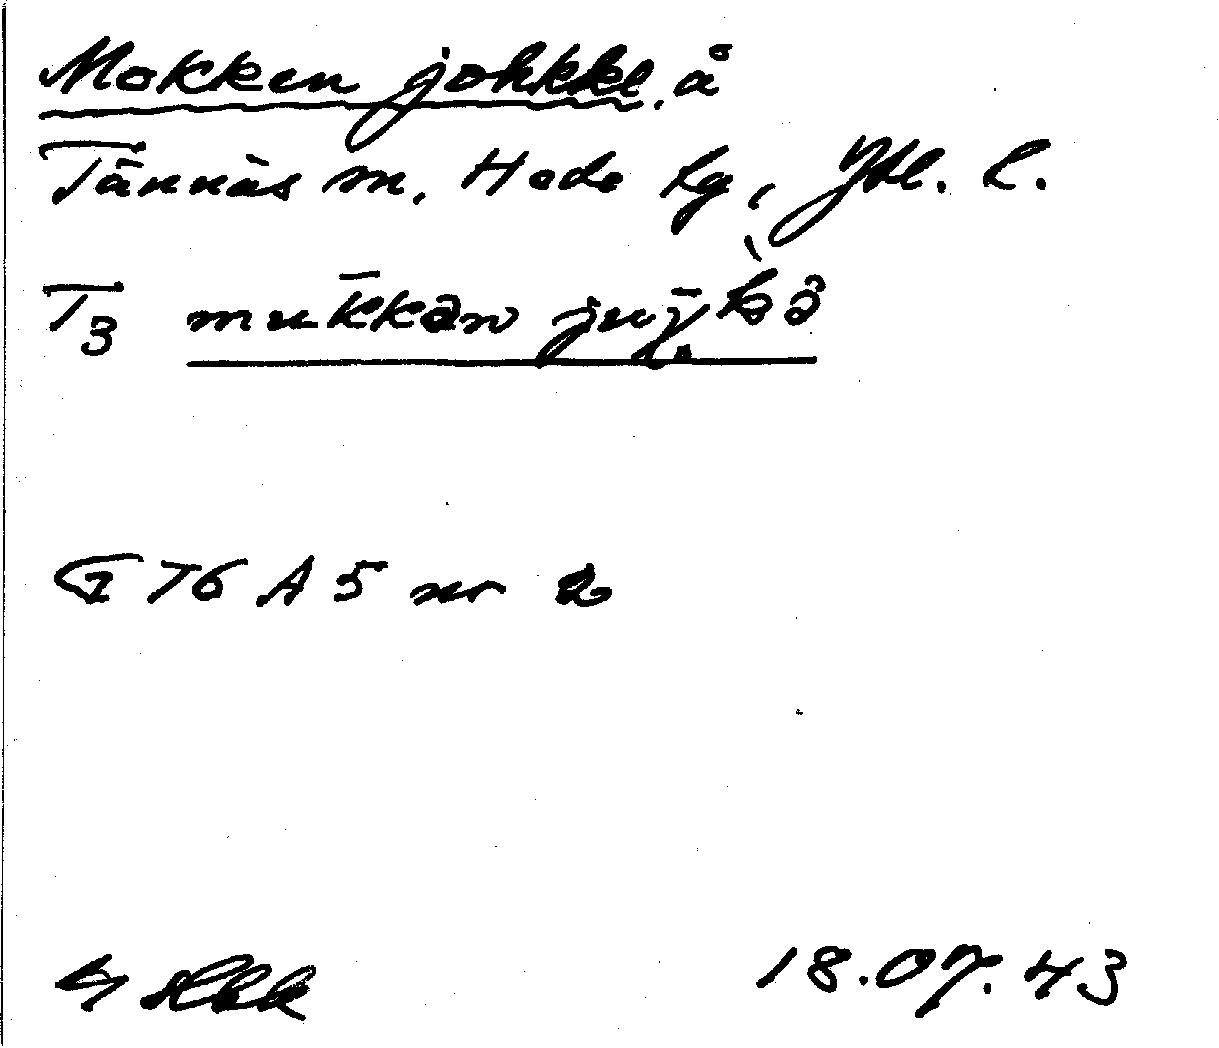 Mokken johkke, å
Tännäs sn, Hede tg, Jtl. l.
T3 mukkən
G 76 A 5 nr 2
18.07.43